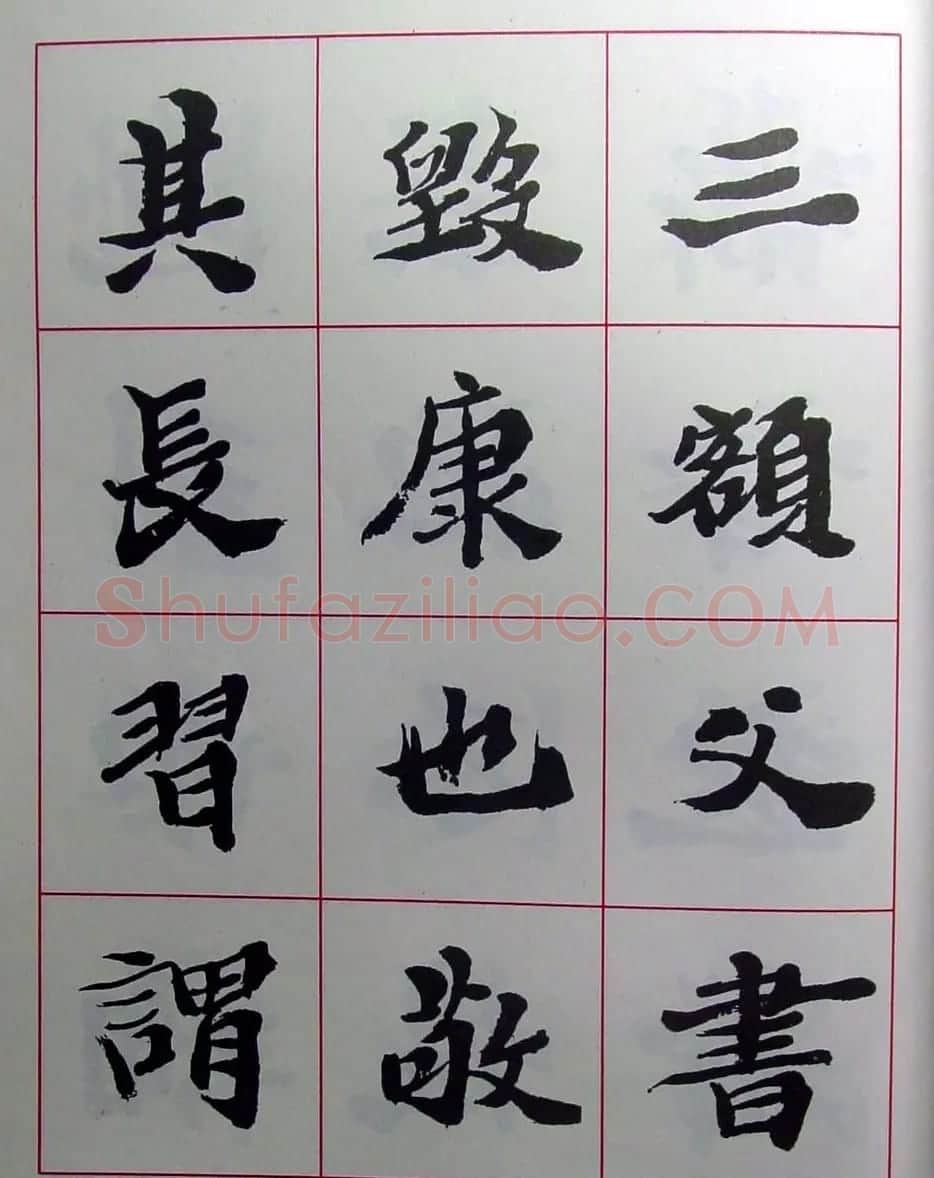 三額父書
毀康也敬
其長習謂
Shufaziliao.COM